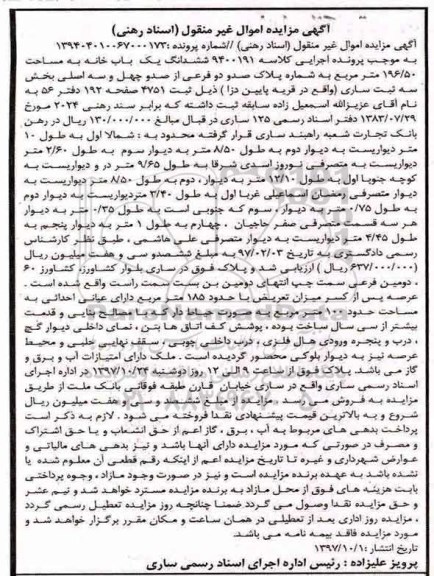 آگهی مزایده اموال غیر منقول (اسناد رهنی)
آگهی مزایده اموال غیر منقول (اسناد رهنی) //شماره پرونده :۱۳۹۴۰۴۰۱۰۰۶۷۰۰۰۱۷۳
به موجب پرونده اجرایی کلاسه ۹۴۰۰۱۹۱ ششدانگ یک باب خانه به مساحت
۱۹۶/۵۰ متر مربع به شماره پلاک صدو دو فرعی از صدو چهل و سه اصلی بخش
سه ثبت ساری (واقع در قریه پایین دزا ) ذیل ثبت ۴۷۵۱ صفحه ۱۹۲ دفتر ۵۶ به
نام آقای عزیزالله اسمعیل زاده سابقه ثبت داشته که برابر سند رهنی ۲۰۲۴ مورخ
۱۳۸۳/۰۷/۲۹ دفتر اسناد رسمی ۱۲۵ ساری در قبال مبالغ ۱۳۰/۰۰۰/۰۰۰ ریال در رهن
بانک تجارت شعبه راهبند ساری قرار گرفته محدود به : شمالا اول به طول ۱۰
متر دیواریست به دیوار دوم به طول ۸/۵۰ متر به دیوار سوم به طول ۲/۶۰ متر
دیواریست به متصرفی نوروز اسدی شرقا به طول ۹/۶۵ متر در و دیواریست به
کوچه جنوبا اول به طول ۱۲/۱۰ متر به دیوار ، دوم به طول ۸/۵۰ متر دیواریست به
دیوار متصرفی رمضان اسماعیلی غربا اول به طول ۳/۴۰ متردیواریست به دیوار دوم
به طول ۰/۷۵ متر به دیوار سوم که جنوبی است به طول ۰/۳۵ متر به دیوار
هر سه قسمت متصرفی صفر حاجیان ، چهارم به طول ۱ متر به دیوار پنجم به
طول ۴/۴۵ متر دیواریست به دیوار متصرفی علی هاشمی ، طبق نظر کارشناس
رسمی دادگستری به تاریخ ۹۷/۰۲/۰۳ به مبلغ ششصدو سی و هفت میلیون ریال
(۶۳۷/۰۰۰/۰۰۰ ریال ) ارزیابی شد و پلاک فوق در ساری بلوار کشاورز، کشاورز ۶۰
، دومین فرعی سمت چپ انتهای دومین بن بست سمت راست واقع شده است .
عرصه پس از کسر میزان تعریض با حدود ۱۸۵ متر مربع دارای عیانی احداثی به
مساحت حدود ۱۰۰ متر مربع به صورت حیاط دار که با مصالح بنایی و قدمت
بیشتر از سی سال ساخت بوده ، پوشش کف اتاق ها بتن ، نمای داخلی دیوار گچ
، درب و پنجره ورودی هال فلزی ، درب داخلی چوبی ، سقف نهایی حلبی و محیط
عرصه نیز به دیوار بلوکی محصور گردیده است . ملک دارای امتیازات آب و برق و
گاز می باشد. پلاک فوق از ساعت ۹ الی ۱۲ روز دوشنبه ۱۳۹۷/۱۰/۲۴ در اداره اجرای
اسناد رسمی ساری واقع در ساری خیابان قارن طبقه فوقانی بانک ملت از طریق
مزایده به فروش می رسد. مزایده از مبلغ ششصد و سی و هفت میلیون ریال
شروع و به بالاترین قیمت پیشنهادی نقدا فروخته می شود . لازم به ذکر است
پرداخت بدهی های مربوط به آب ، برق ، گاز اعم از حق انشعاب و یا حق اشتراک
و مصرف در صورتی که مورد مزایده دارای آنها باشد و نیز بدهی های مالیاتی و
عوارض شهرداری و غیره تا تاریخ مزایده اعم از اینکه رقم قطعی آن معلوم شده یا
نشده باشد به عهده برنده مزایده است و نیز در صورت وجود مازاد ، وجوه پرداختی
بابت هزینه های فوق از محل مازاد به برنده مزایده مسترد خواهد شد و نیم عشر
و حق مزایده نقدا وصول می گردد ضمنا چنانچه روز مزایده تعطیل رسمی گردد
، مزایده روز اداری بعد از تعطیلی در همان ساعت و مکان مقرر برگزار خواهد شد و
مورد مزایده فاقد بیمه نامه می باشد.
تاریخ انتشار :۱۳۹۷/۱۰/۱
پرویز علیزاده : رئیس اداره اجرای اسناد رسمی ساری